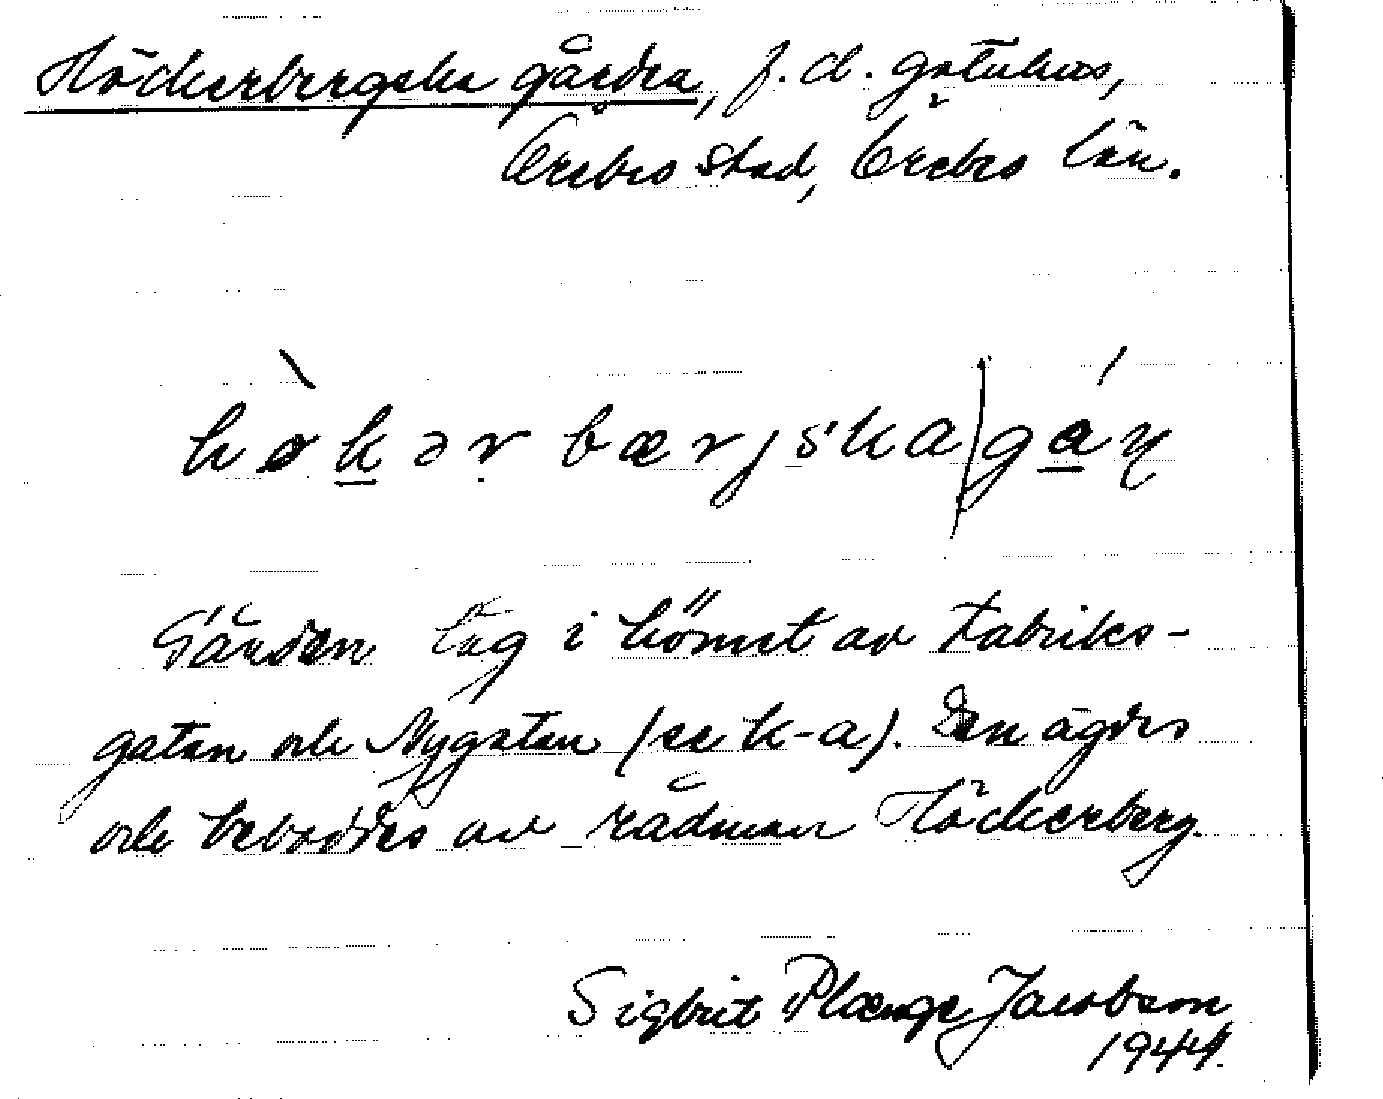 Höckerbergska gården, f.d. gatuhus,
Örebro stad, Örebro län.
høkərbærjska|gáɳ
Gården låg i hörnet av Fabriks-
gatan och Nygatan (se k-a). Den ägdes
och beboddes av rådman Höckerberg.
Sigbrit Plænge Jacobson
1944.